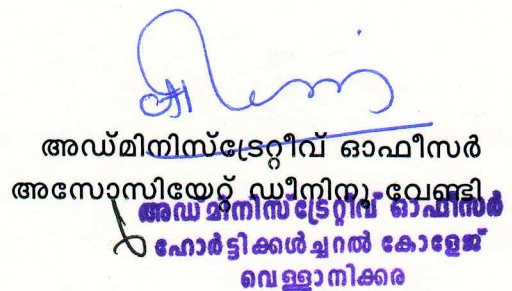 അഡ്മിനിസ്ട്രേറ്റീവ് ഓഫീസർ
അസോസിയേറ്റ് ഡീനിനു വേണ്ടി
അഡ്മിനിസ്ട്രേറ്റീവ് ഓഫീസർ
ഹോർട്ടിക്കൾച്ചറൽ കോളേജ്
വെള്ളാനിക്കര